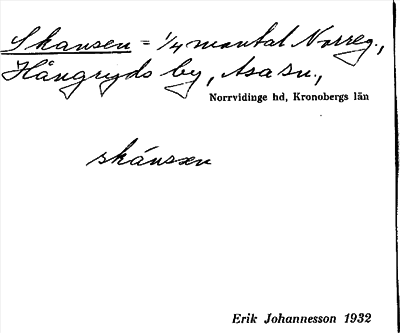 Skansen = 1/4 mantal Norreg.,
Hångryds by, Asa sn.,
Norrvidinge hd, Kronobergs län
skánsæn
Erik Johannesson 1932